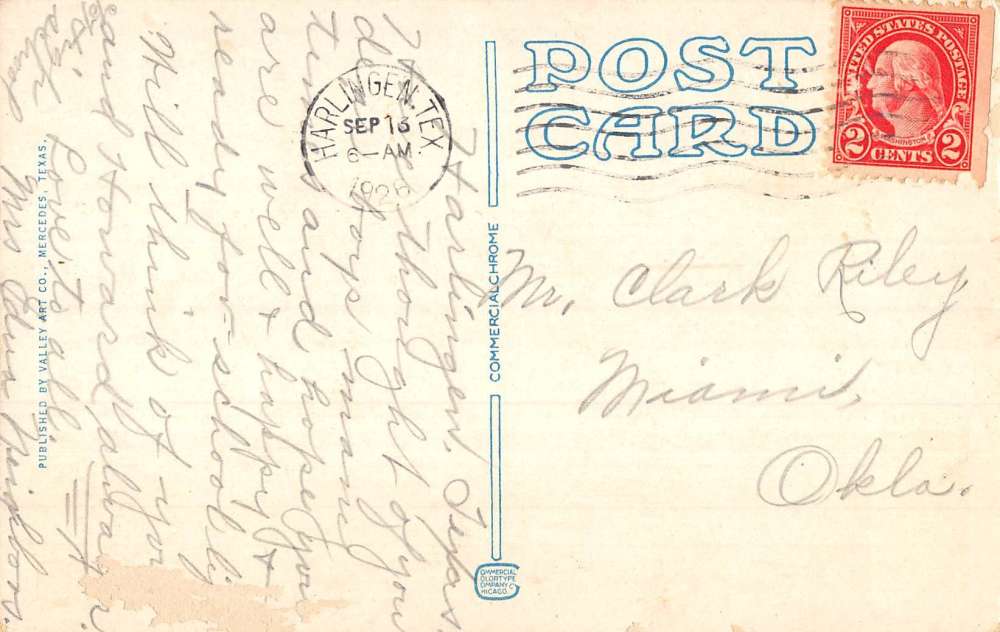 POST
CARD
UNITED STATES POSTAGE
WASHINGTON
2 CENTS 2
HARLINGEN, TEX.
SEP 13
6-AM
192
Mr. Clark Riley
Miami,
Okla.
Harlingen, Texas.
I have thought of you
dear boys many
times and hope you
are well & happy &
ready for school.
Will think of you
and Howard always.
Love to all.
Mrs
PUBLISHED BY VALLEY ART CO., MERCEDES, TEXAS.
COMMERCIALCHROME
COMMERCIAL
COLORTYPE
COMPANY
CHICAGO